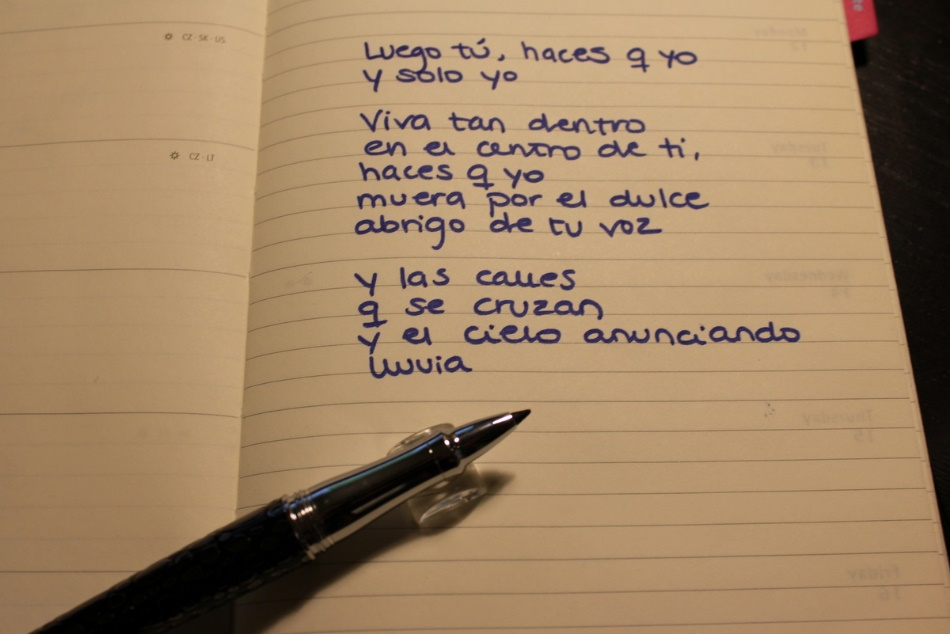 CZ · SK · US
CZ · LT
Luego tú, haces q yo
y solo yo
Viva tan dentro
en el centro de ti,
haces q yo
muera por el dulce
abrigo de tu voz
y las calles
q se cruzan
y el cielo anunciando
lluvia
Monday
12
Tuesday
13
Wednesday
14
Thursday
15
Friday
16